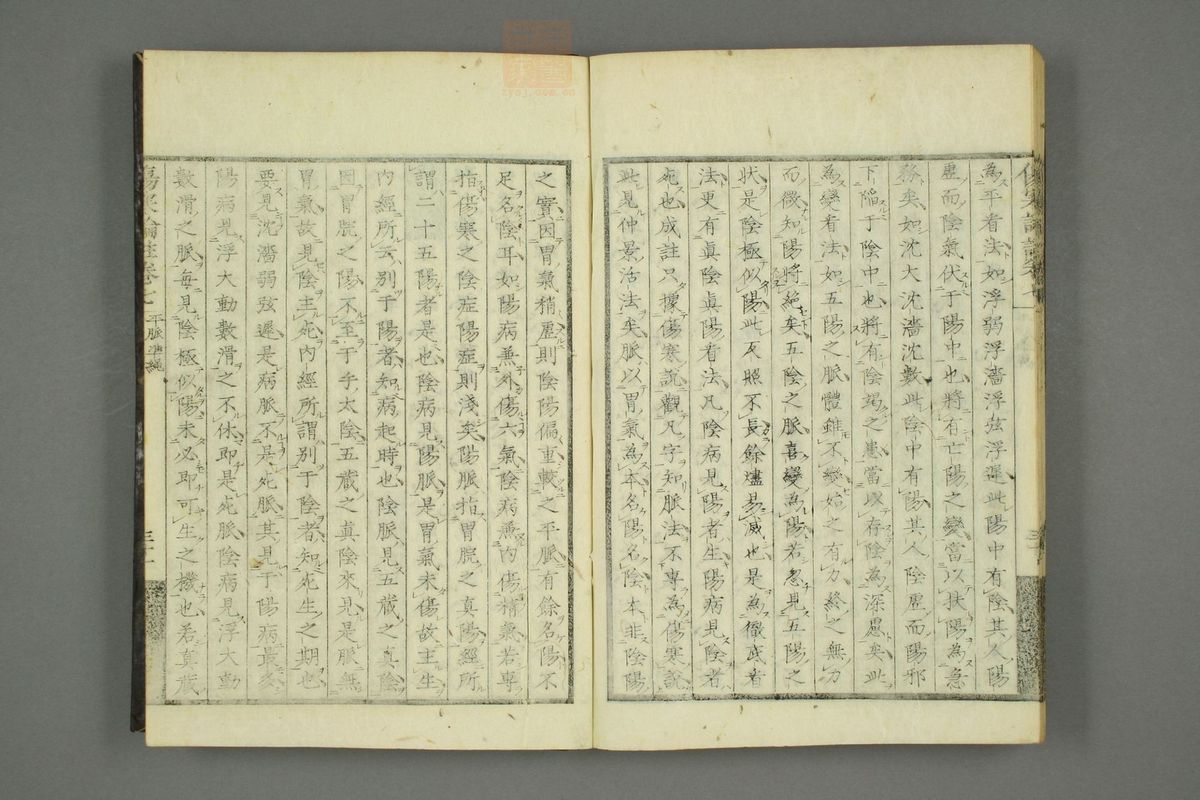 為平者法如浮弱浮濇浮弦浮遲此陽中有陰其人陽
虛而陰氣伏于陽中也將有亡陽之變當以扶陽為急
務矣如沈大沈濇沈數此陰中有陽其人陰虛而陽邪
下陥于陰中也將有陰竭之患當以存陰為深慮矣此
為變者法如五陽之脈體雖不變始之有力終之無力
而微知陽將絕矣五陰之脈喜變為陽若忽見五陽之
狀是陰極似陽此反照不長餘燼易滅也是為徹底看
法更有真陰真陽看法凡陰病見陽者生陽病見陰者
死也成註只據傷寒說觀凡字知脈法不專為傷寒說
此見仲景活法矣脈以胃氣為本名陽名陰本非陰陽
之實因胃氣稍虛則陰陽偏重較之平脈有餘名陽不
足名陰耳如陽病兼外傷六氣陰病兼內傷精氣若專
指傷寒之陰症陽症則淺矣陽脈指胃脘之真陽經所
謂二十五陽者是也陰病見陽脈是胃氣未傷故主生
內經所云別于陽者知病起時也陰脈見五藏之真陰
因胃脘之陽不至于手太陰五藏之真陰來見是脈無
胃氣故見陰主死內經所謂別于陰者知死生之期也
要見沈濇弱弦遲是病脈不是死脈其見于陽病最多
陽病見浮大動數滑之不休即是死脈陰病見浮大動
數滑之脈每見陰極似陽未必即可生之機也若真藏
平脈準繩